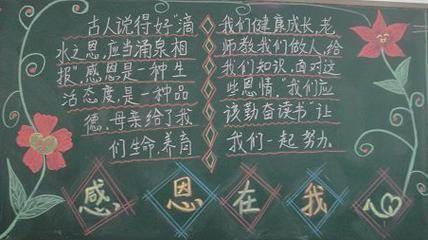 古人说得好“滴
水之恩,应当涌泉相
报”,感恩是一种生
活态度,是一种品
德.母亲给了我
们生命,养育
我们健康成长,老
师教我们做人,给
我们知识,面对这
些恩情,“我们应
该勤奋读书”让
我们一起努力。
感恩在我心